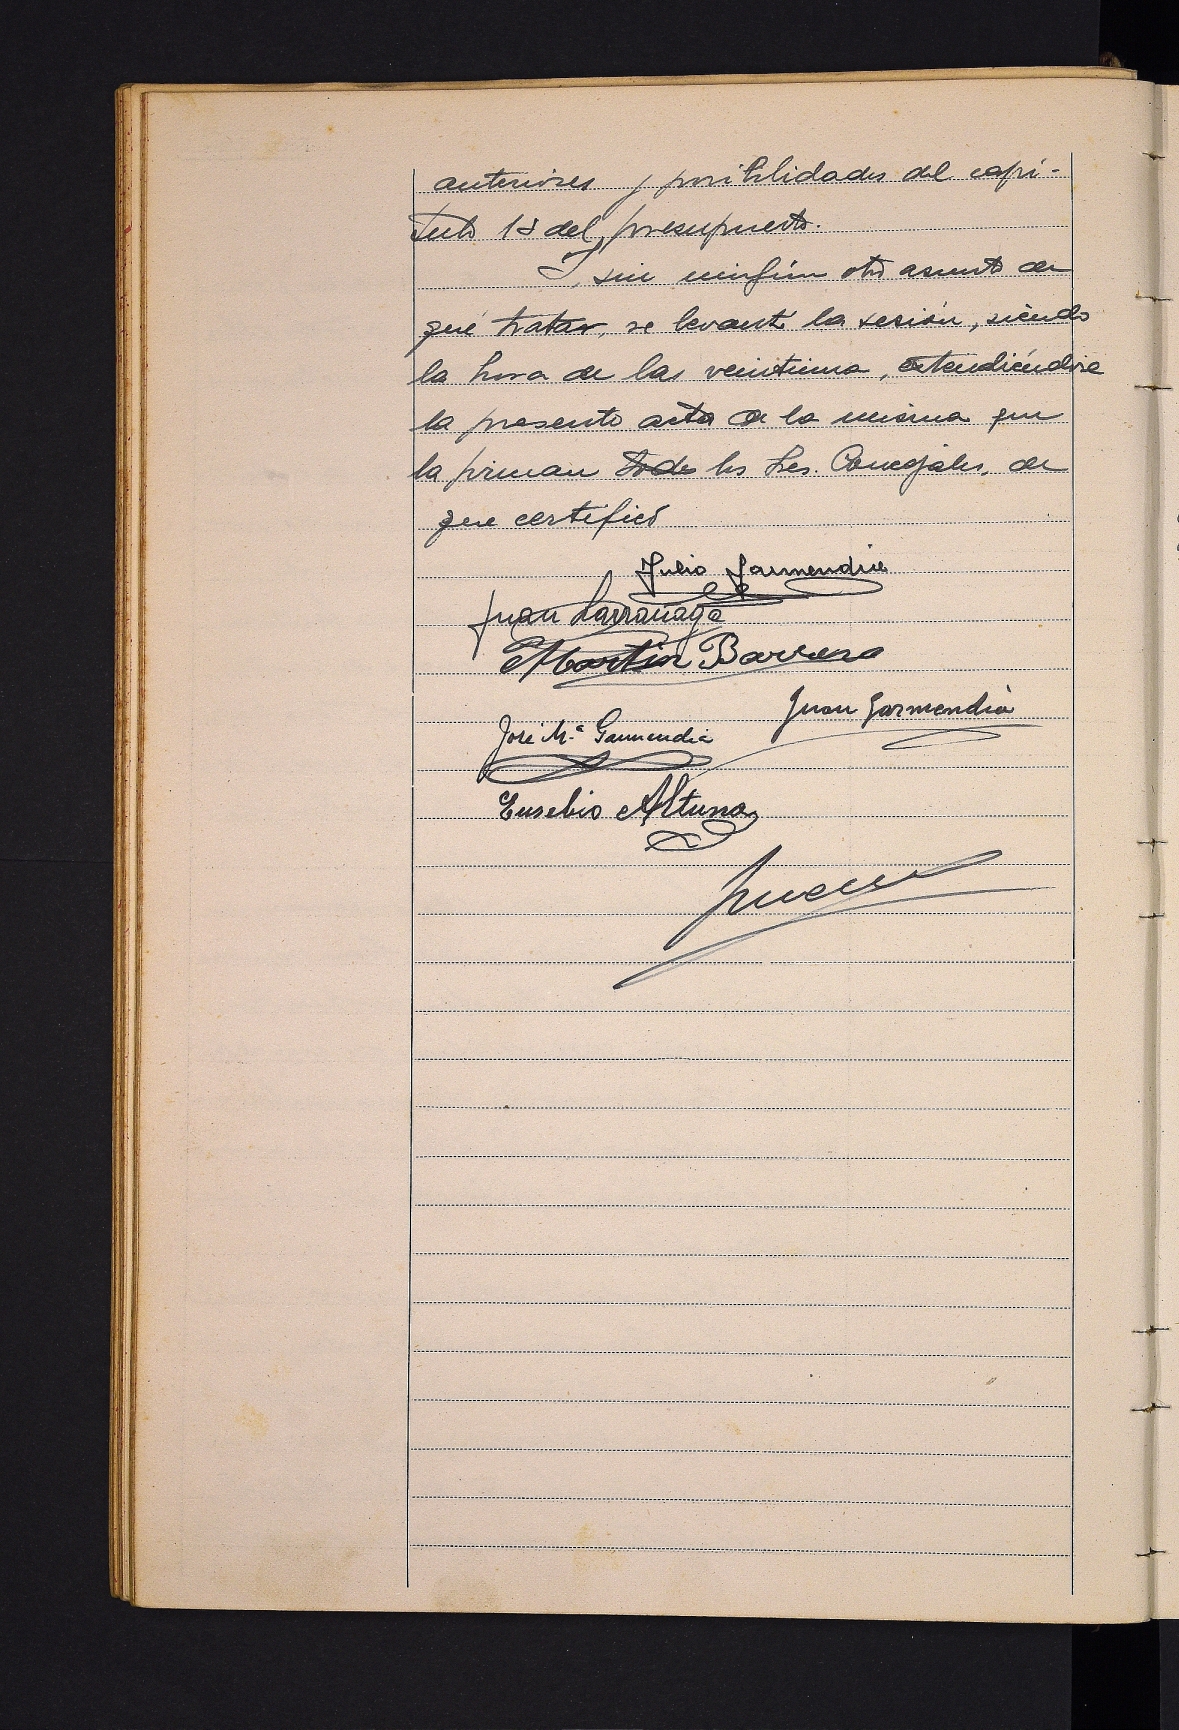 anteriores y posibilidades del capí-
tulo 18 del presupuesto.
Y, sin ningún otro asunto de
qué tratar, se levantó la sesión, siendo
la hora de las veintiuna, extendiéndose
la presente acta de la misma que
la firman todos los Sres. Concejales, de
que certificó
Julio Garmendia
Juan Larrañaga
Martin Barrena
Juan Garmendia
José Mª Garmendia
Eusebio Altuna